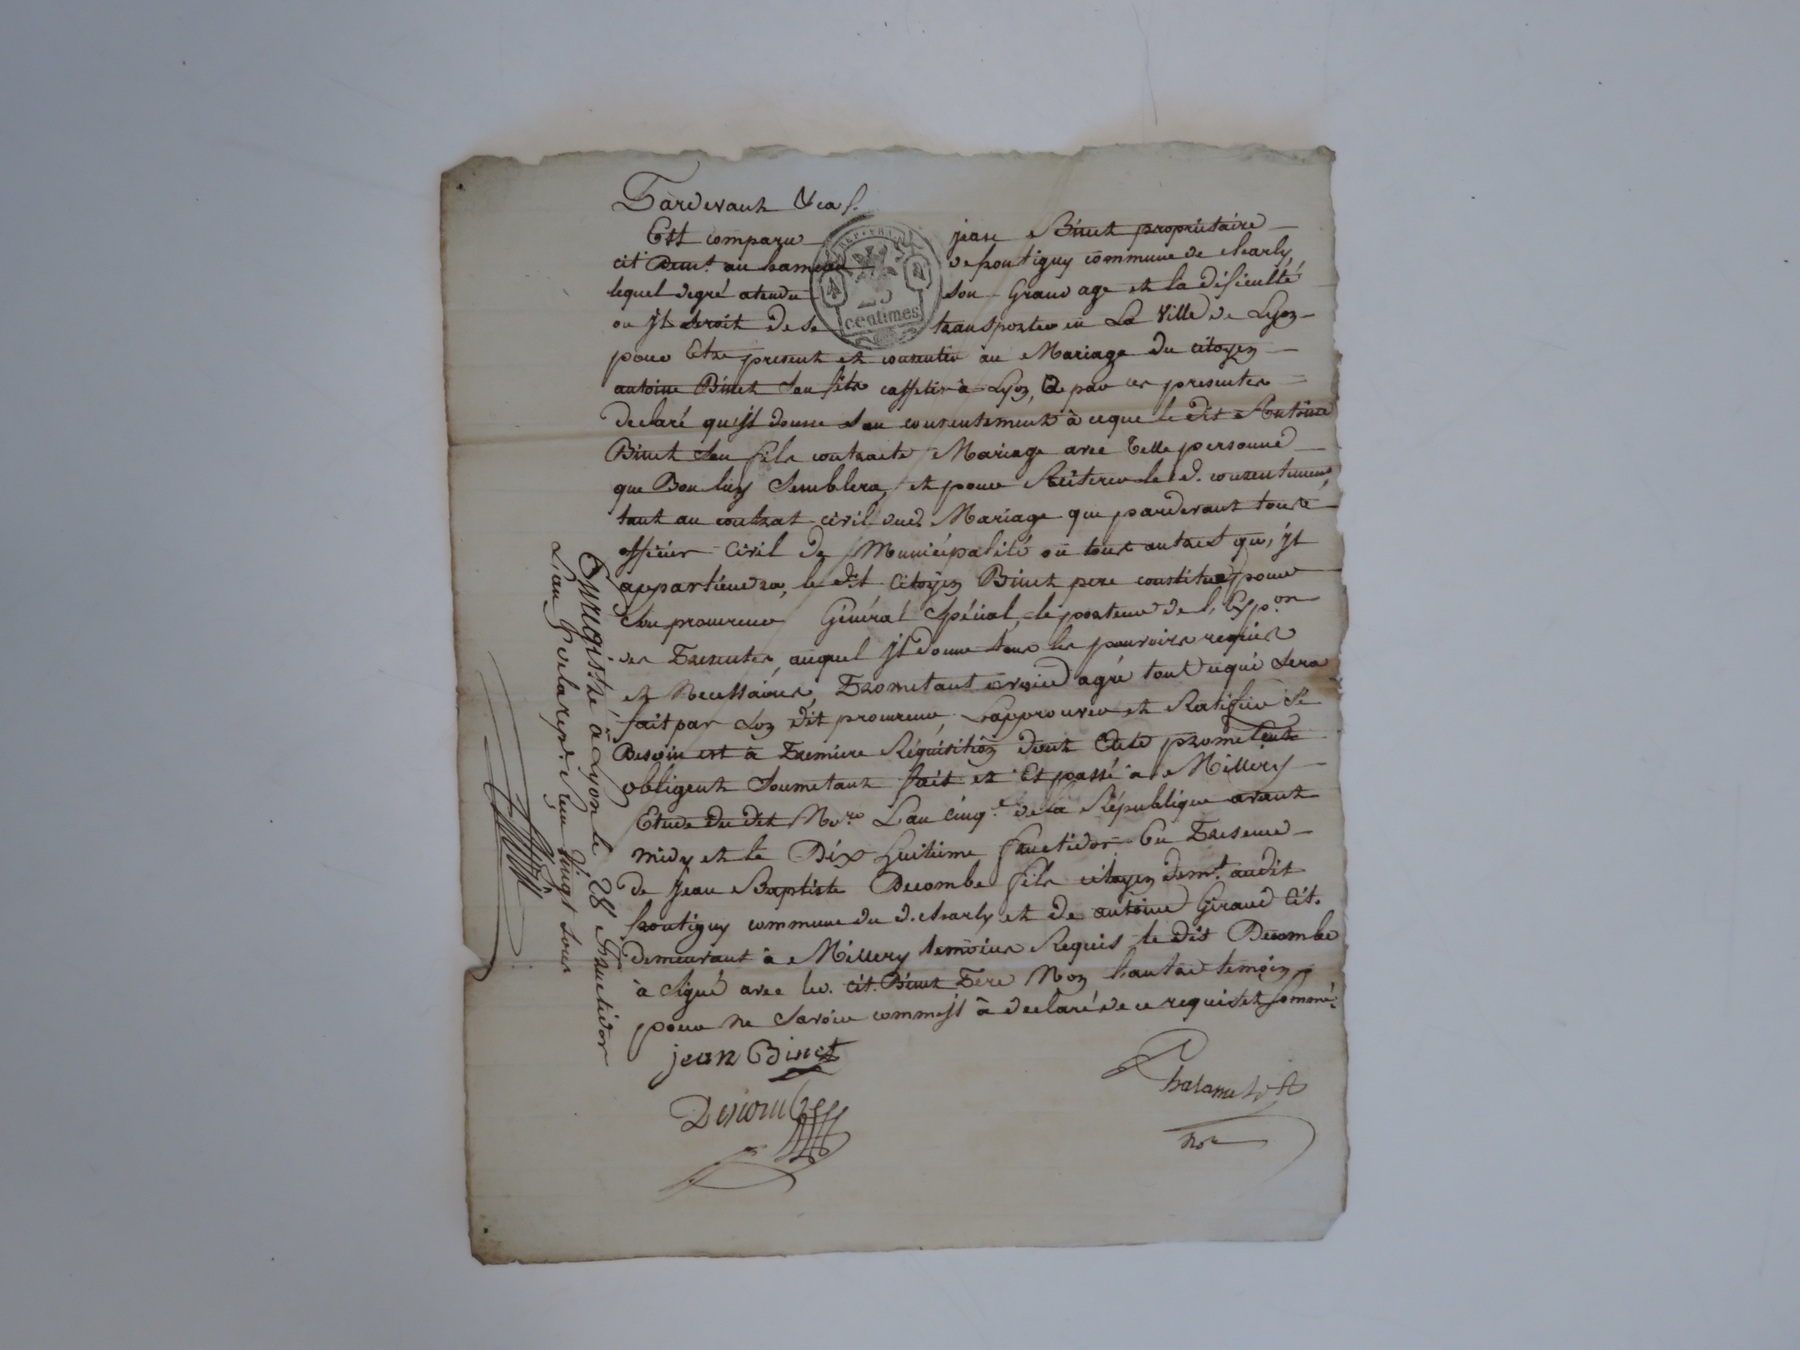 Pardevant &ca s.
Est comparu jean Binet propriétaire
cit. Demt. au hameau de pontiguy commune de charly
lequel degré atendu son Grand age et la disiculté
ou jl seroit de se transporter en La Ville de Lyon
pour Etre present et consentir au Mariage du citoyen
antoine Binet son fils caffetier à Lyon, a par ces presentes
declaré qu'jl donne son consentement à ceque le dit Antoine
Binet son fils contracte Mariage avec telle personne
que Bon luy semblera, et pour Reiterer le d. consentement,
tant au contrat civil dud. Mariage que pardevant toute
officier civil de Municipalité ou tous autres qu'jl
appartiendra, le dit citoyen Binet pere constitue pour
son procureur Général Spécial, le porteur de l'Expon
des Presentes, auquel jl donne tous les pouvoirs requis
et Necessaires, Prometant avoir agré tout cequi sera
fait par son dit procureur, Lapprouver et Ratifier Si
Besoin est à Premiere Réquisition dont acte prometant
obligeant soumetant fait et Et passé à Millery
Etude du dit Nre. L'an cinqe. de la République avant
midy et le Dix huitieme fructidor En Presence
de Jean Baptiste Decombe fils citoyen demt. audit
pontiguy commune du d. charly et de antoine Giraud Cit.
demeurant à Millery temoins Requis le dit Decombe
à signé avec led. cit. Binet Pere Non Lautre temoin
pour ne savoir comme jl à declaré de ce requis et sommé.
jean Binet
Descombes
Chalamel
nore
Enregistré à Lyon le 28 fructidor
L'an 5 de la rep. reçu vingt sous
25
centimes